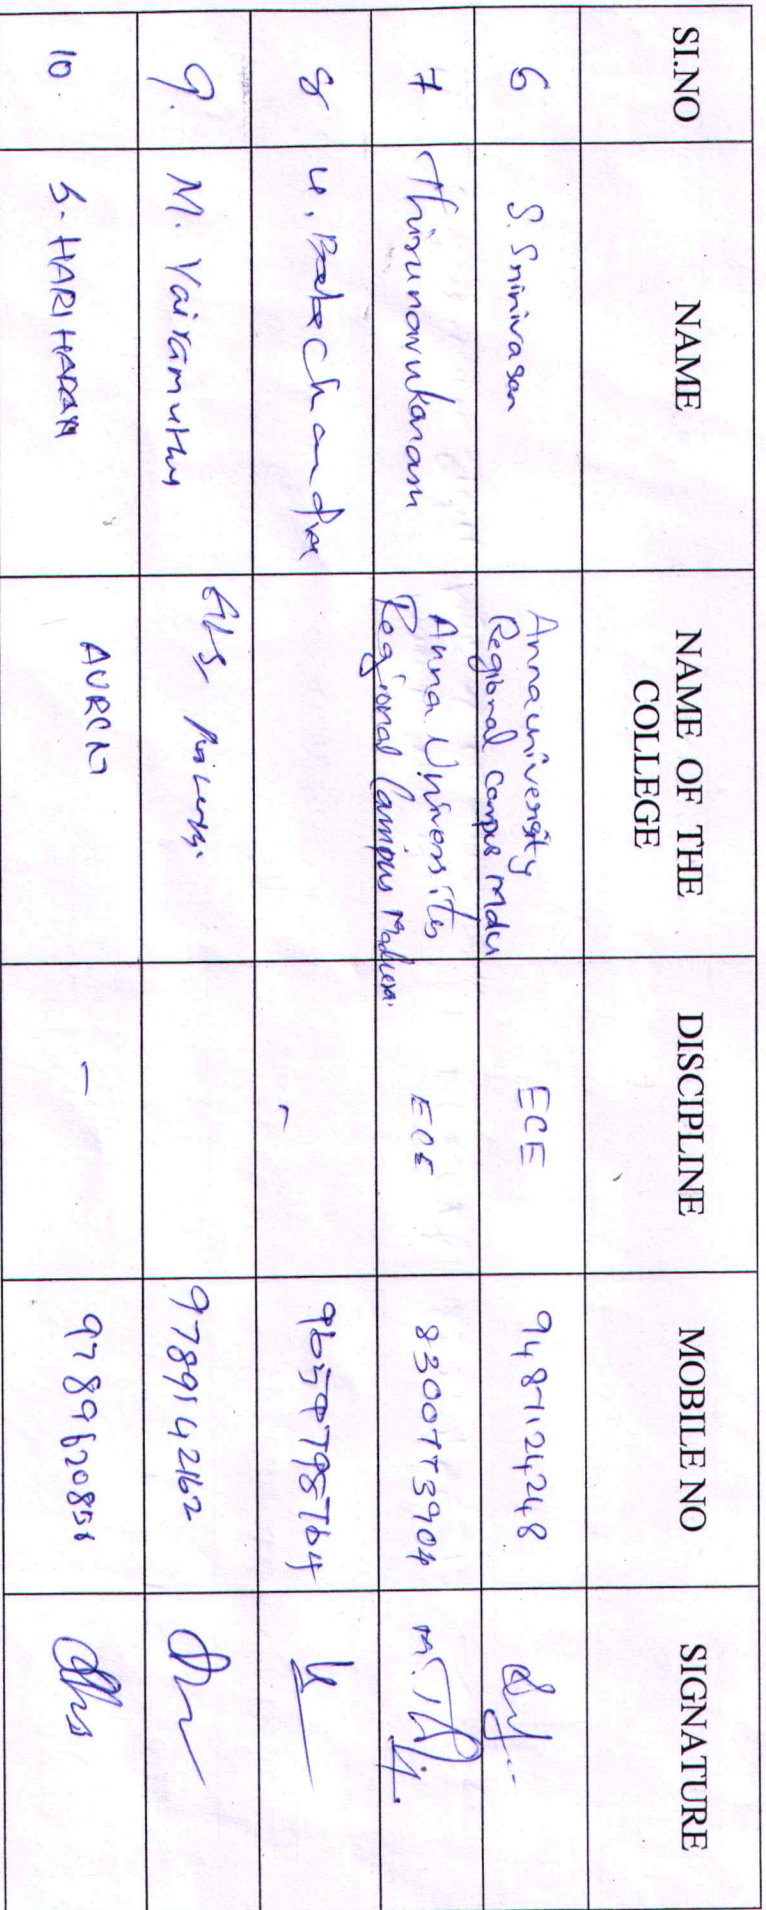 SI.NO NAME NAME OF THE COLLEGE DISCIPLINE MOBILE NO SIGNATURE
6 S. Srinivasan Anna university Regional Campus mdu ECE 9487124248
7 Thirunavukarasu Anna University Regional Campus Madurai ECE 8300773904
8 - 9659798764
9. M. Vairamuthu 9789142162
10. S. HARI HARAN AURCM - 9789620856